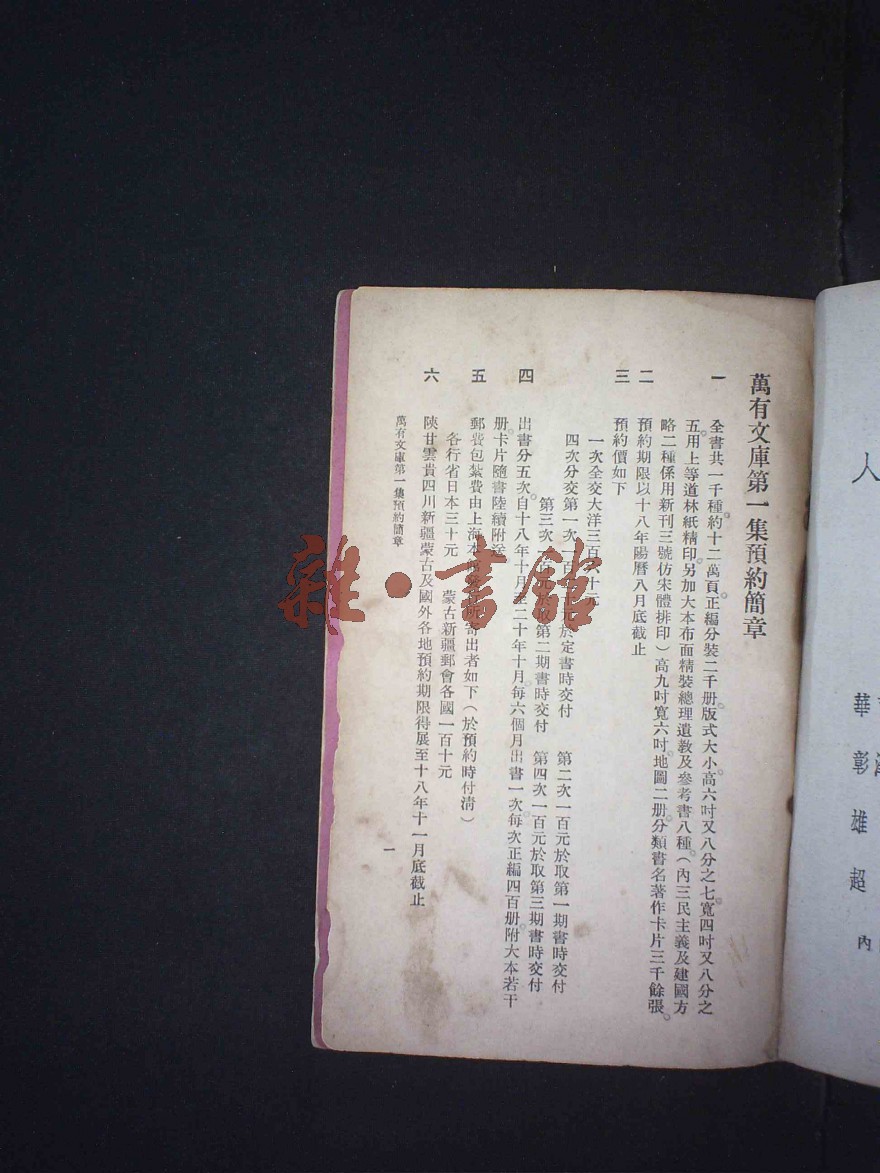 萬有文庫第一集預約簡章
一 全書共一千種約十二萬頁。正編分裝二千册。版式大小高六吋又八分之七。寬四吋又八分之
五。用上等道林紙精印。另加大本布面精裝總理遺教及參考書八種。(內三民主義及建國方
略二種係用新刊三號仿宋體排印)高九吋寬六吋。地圖二册。分類書名著作卡片三千餘張。
二 預約期限以十八年陽曆八月底截止
三 預約價如下
一次全交大洋三百 十元
四次分交第一次一百 元於定書時交付 第二次一百元於取第一期書時交付
第三次一百元於取第二期書時交付 第四次一百元於取第三期書時交付
四 出書分五次。自十八年十月至二十年十月。每六個月出書一次。每次正編四百册附大本若干
册。卡片隨書陸續附送
五 郵費包紮費由上海本 寄出者如下(於預約時付清)
各行省日本三十元 蒙古新疆郵會各國一百十元
六 陝甘雲貴四川新疆蒙古及國外各地預約期限得展至十八年十一月底截止
萬有文庫第一集預約簡章
一
人
華彰雄超
內
雜·書館